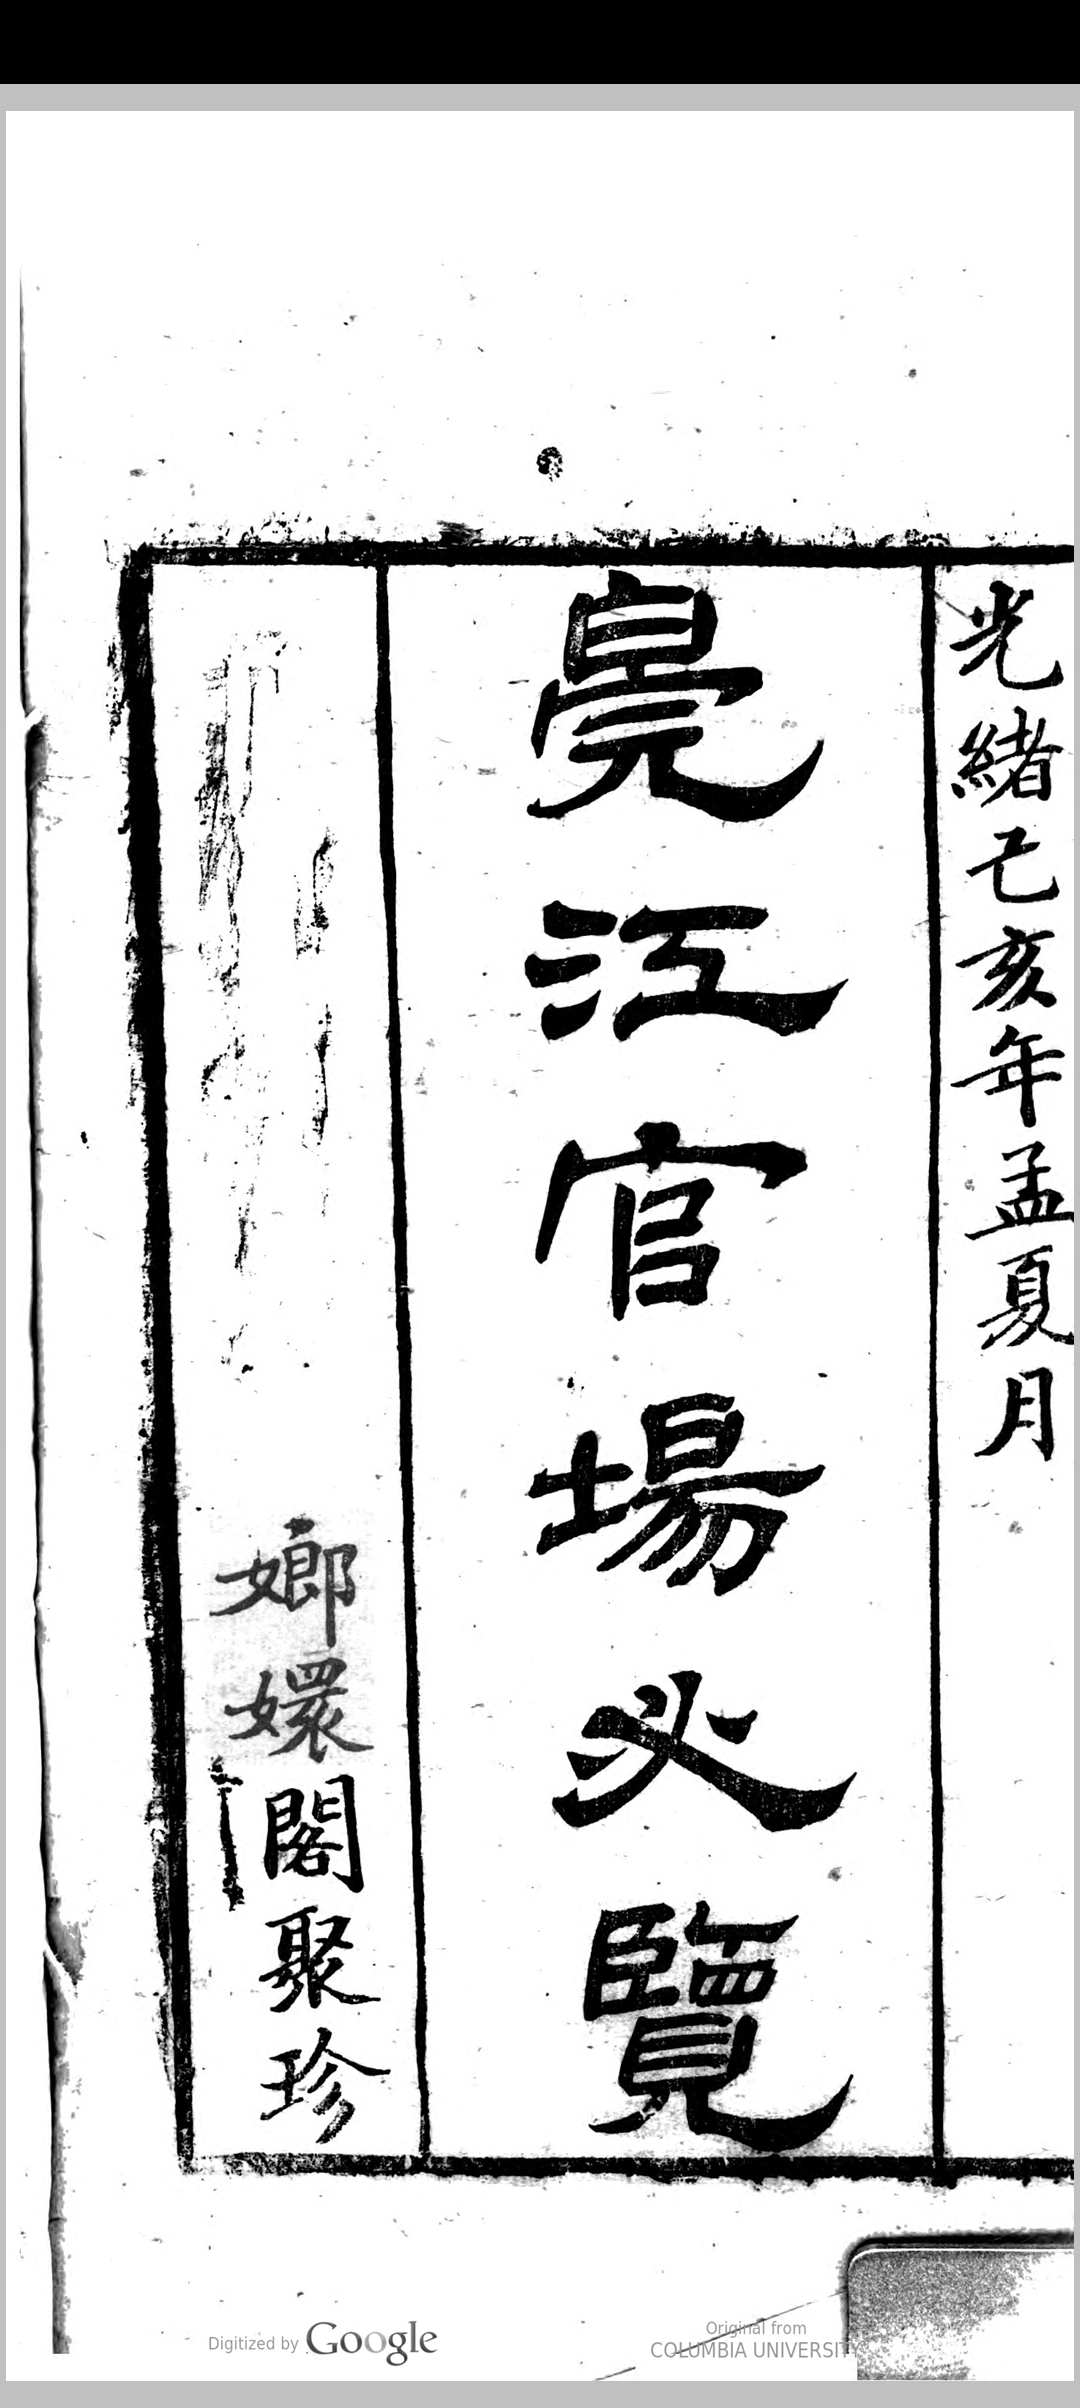 光緒己亥年孟夏月
江官場必覽
嫏嬛閣聚珍
Digitized by Google
Original from
COLUMBIA UNIVERSITY